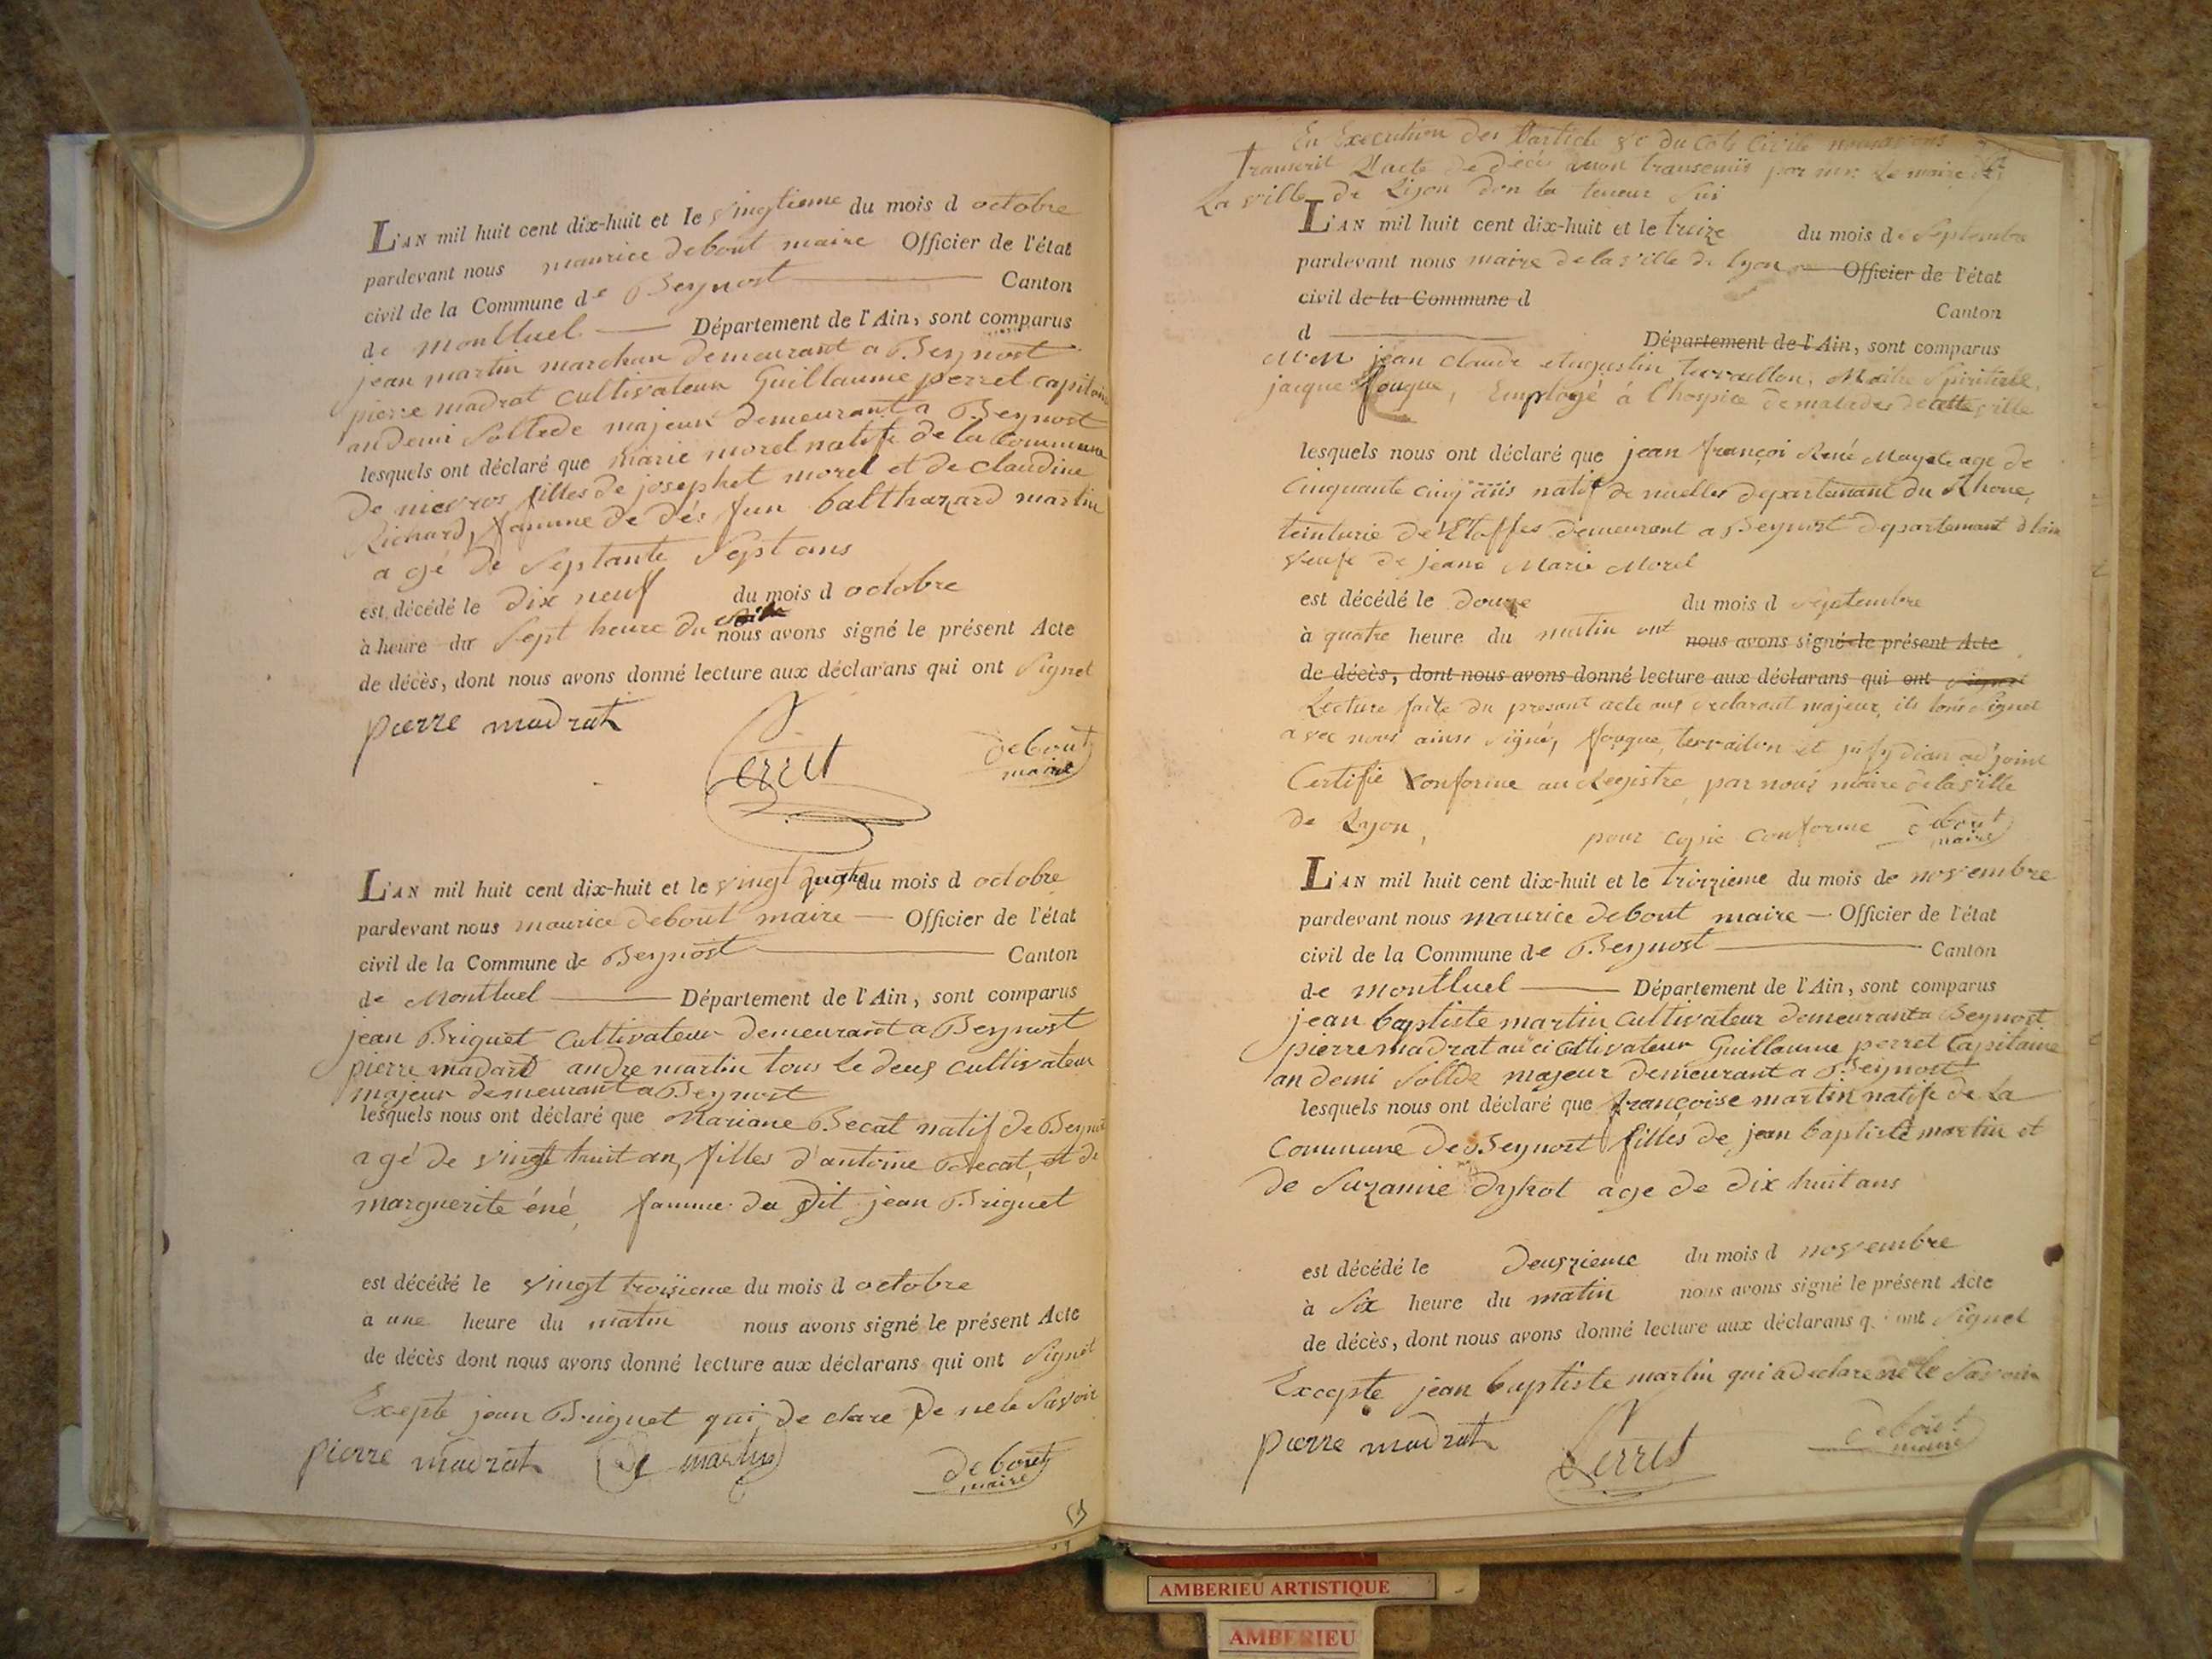 L'AN mil huit cent dix-huit et le vingtieme du mois d octobre
pardevant nous maurice debout maire Officier de l'état
civil de la Commune de Beynost Canton
de montluel Département de l'Ain, sont comparus
jean martin marchan demeurant a Beynost
pierre madrat cultivateur Guillaume perret capitaine
an demi Soltede majeur demeurant a Beynost
lesquels ont déclaré que marie morel natife de la Commune
de filles de josephet morel et de claudine
Richard, famme de défun balthazard martin
agé de Septante Sept ans
est décédé le dix neuf du mois d octobre
à heure du Sept heure du soire nous avons signé le présent Acte
de décès, dont nous avons donné lecture aux déclarans qui ont Signet
pierre madrat
Perret
debout
maire
L'AN mil huit cent dix-huit et le vingt quatre du mois d octobre
pardevant nous maurice debout maire Officier de l'état
civil de la Commune de Beynost Canton
de Montluel Département de l'Ain, sont comparus
jean Briguet Cultivateur demeurant a Beynost
pierre madart andre martin tous le deux cultivateur
majeur demeurant a Beynost
lesquels nous ont déclaré que Mariane Becat natif de Beynost
agé de vingt huit an, filles d'antoine Becat, et de
marguerite éné, famme du dit jean Briguet
est décédé le vingt troisieme du mois d octobre
à une heure du matin nous avons signé le présent Acte
de décès dont nous avons donné lecture aux déclarans qui ont Signet
Exepte jean Briguet qui de clare de ne le Savoir
pierre madrat martin debout
maire
En Execution de l'article 80 du Code Civile nous avons
transcrit l'acte de décès transemis par mr. le maire de
La ville de Lyon don la teneur Sui
L'AN mil huit cent dix-huit et le treize du mois de Septembre
pardevant nous maire de la ville de lyon Officier de l'état
civil de la Commune d Canton
d Département de l'Ain, sont comparus
jean claude augustin terraillon, Maître
jacque fouque, Employé à l'hospice de malades de cette ville
lesquels nous ont déclaré que jean françoi René Mayet age de
Cinquante cinq ans natif de nuelles departemant du Rhone,
teinturie de Etoffes demeurant a Beynost departemant d lain
veufe de jeane Marie Morel
est décédé le douze du mois d Septembre
à quatre heure du matin ont nous avons signé le présent Acte
de décès, dont nous avons donné lecture aux déclarans qui ont signet
Lecture faite du present acte aux declarant majeur, ils lons Signet
avec nous ainsi Signé, fouque, terrailon et adjoint
Certifié Conforme au Registre par nous maire de la ville
de Lyon, pour copie conforme debout
maire
L'AN mil huit cent dix-huit et le troizieme du mois de novembre
pardevant nous maurice debout maire Officier de l'état
civil de la Commune de Beynost Canton
de montluel Département de l'Ain, sont comparus
jean baptiste martin Cultivateur demeurant a Beynost
pierre madrat au ci cultivateur Guillaume perret Capitaine
an demi Soltde majeur demeurant a Beynost
lesquels nous ont déclaré que françoise martin natife de La
Commune de Beynost filles de jean baptiste martin et
de Suzanne age de dix huit ans
est décédé le deuxzieme du mois d novembre
à Six heure du matin nous avons signé le présent Acte
de décès, dont nous avons donné lecture aux déclarans q ont Signet
Excepte jean baptiste martin qui a declare ne le Savoir
pierre madrat Perret debout
maire
AMBERIEU ARTISTIQUE
AMBERIEU